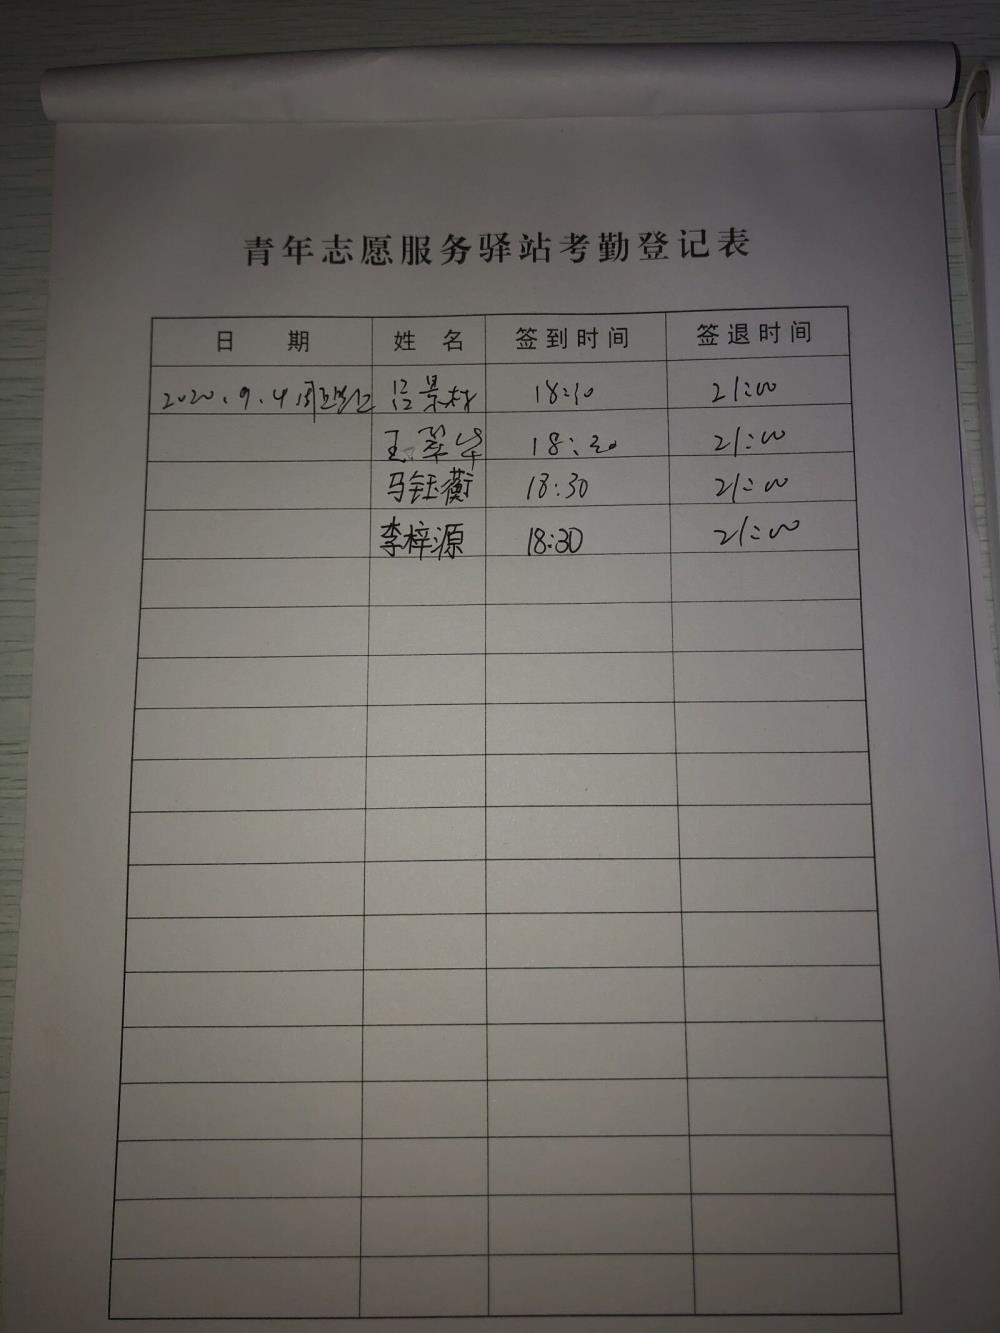 青年志愿服务驿站考勤登记表
日期 姓名 签到时间 签退时间
2020.9.4 周五 吕景材 18:10 21:00
王翠华 18:20 21:00
马钰蘅 18:30 21:00
李梓源 18:30 21:00